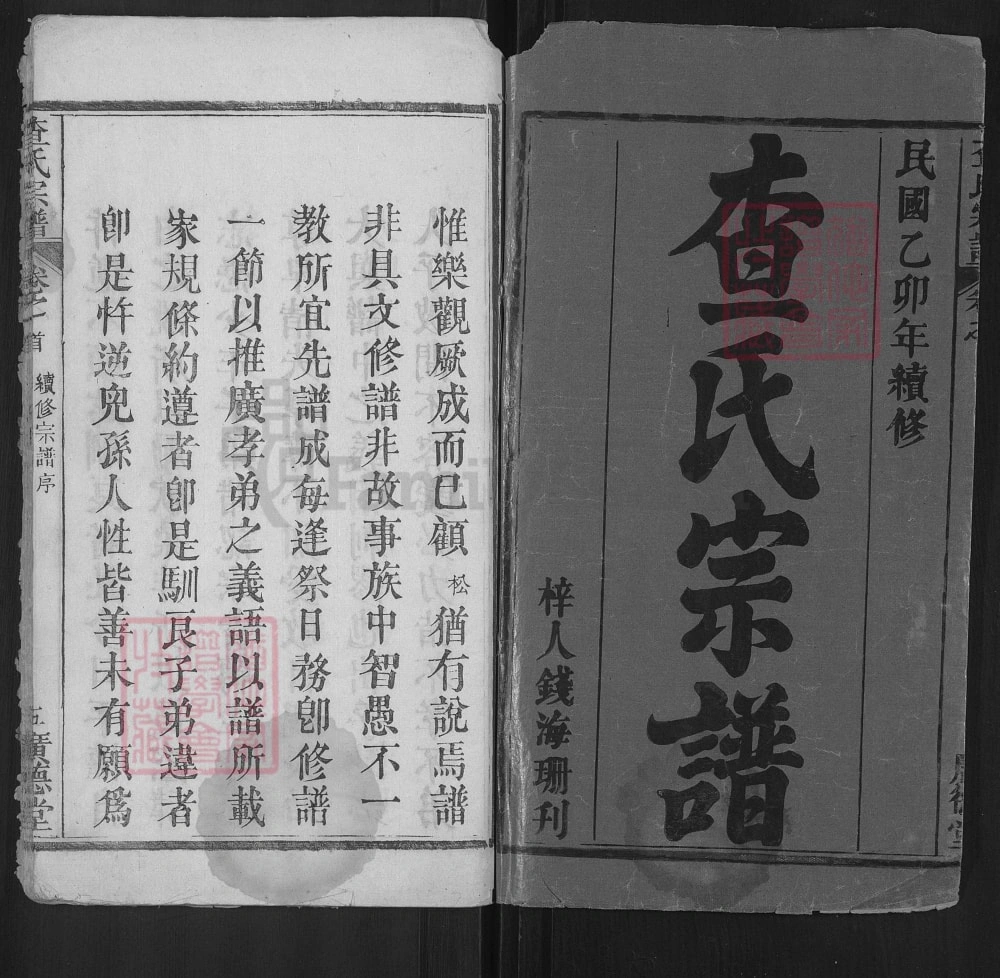 民國乙卯年續修
查氏宗譜
梓人錢海珊刊
惟樂觀厥成而已顧松猶有說焉譜
非具文修譜非故事族中智愚不一
教所宜先譜成每逢祭日務卽修譜
一節以推廣孝弟之義語以譜所載
家規條約遵者卽是馴良子弟違者
卽是忤逆兒孫人性皆善未有願爲
查氏宗譜
卷之首
續修宗譜序
五
廣德堂